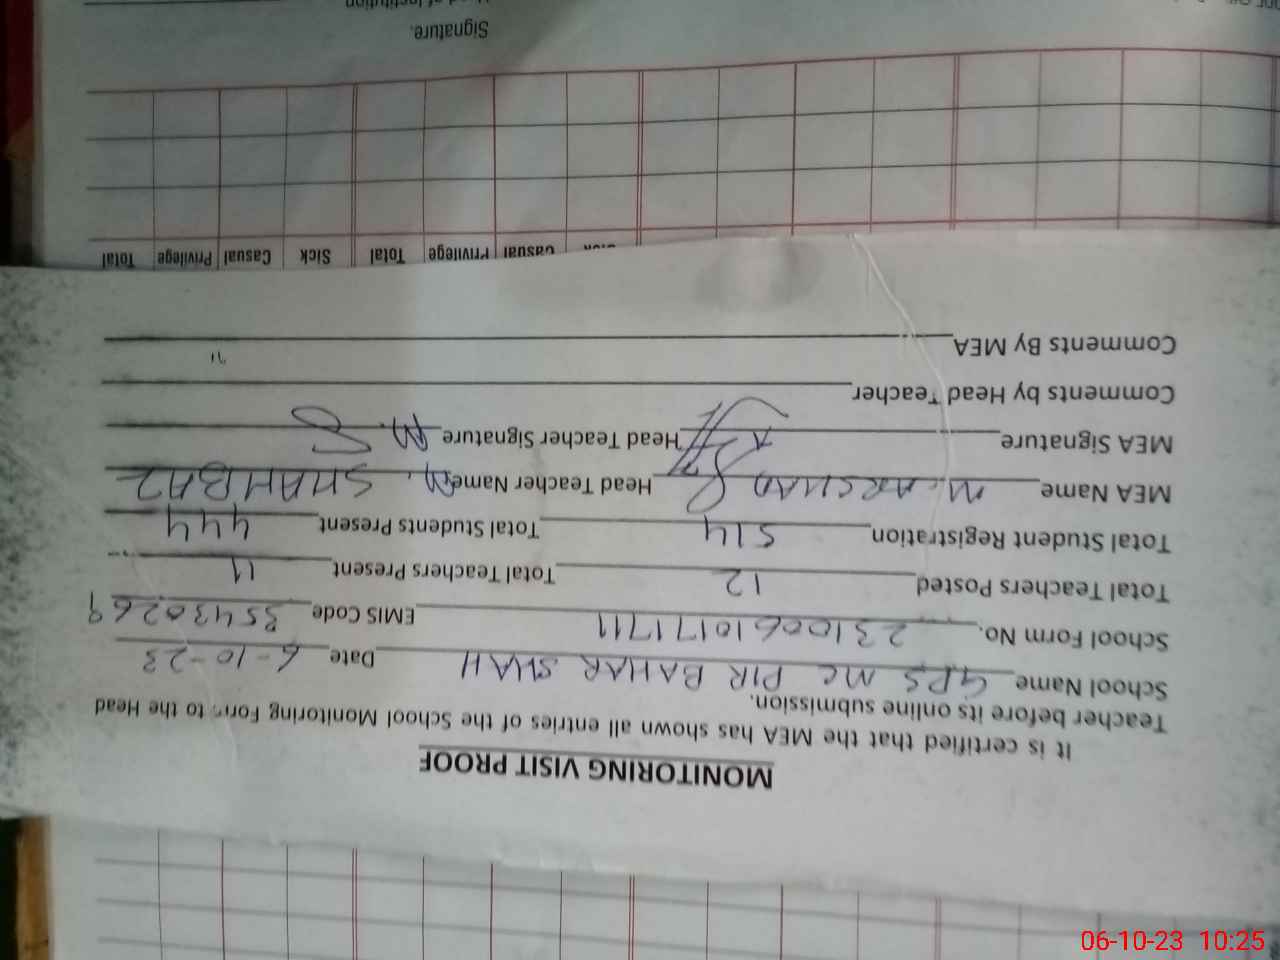 MONITORING VISIT PROOF
It is certified that the MEA has shown all entries of the School Monitoring Form to the Head
Teacher before its online submission.
School Name GPS MC PIR BAHAR SHAH Date 6-10-23
School Form No. 23100610171711 EMIS Code 35430269
Total Teachers Posted 12 Total Teachers Present 11
Total Student Registration 514 Total Students Present 444
MEA Name M. ARSHAD Head Teacher Name M. SHAHBAZ
MEA Signature Head Teacher Signature
Comments by Head Teacher
Comments By MEA
Total Privilege Casual Sick Total Privilege Casual
Signature.
06-10-23 10:25